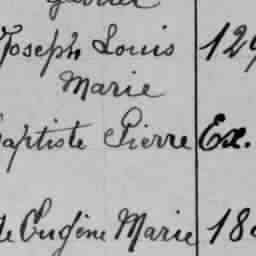 Joseph Louis 129
Marie
Baptiste Pierre Ex.
de Eugène Marie 18